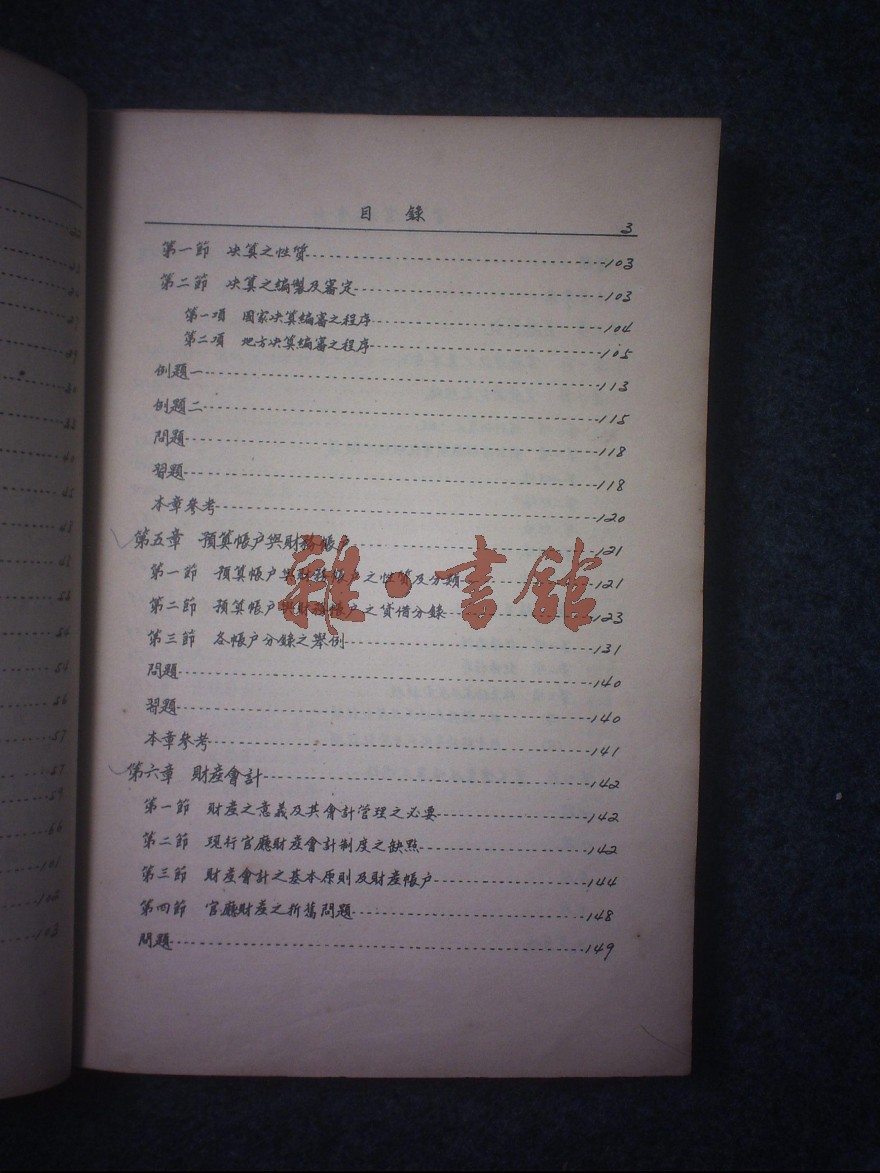 目錄 3
第一節 决算之性質 103
第二節 决算之編製及審定 103
第一項 國家决算編審之程序 104
第二項 地方决算編審之程序 105
例題一 113
例題二 115
問題 118
習題 118
本章參考 120
第五章 預算帳户與財務帳户 121
第一節 預算帳户與財務帳户之性質及分類 121
第二節 預算帳户與財務帳户之貸借分錄 123
第三節 各帳户分錄之舉例 131
問題 140
習題 140
本章參考 141
第六章 財產會計 142
第一節 財產之意義及其會計管理之必要 142
第二節 現行官廳財產會計制度之缺點 142
第三節 財產會計之基本原則及財產帳户 144
第四節 官廳財產之折舊問題 148
問題 149
雜·書館